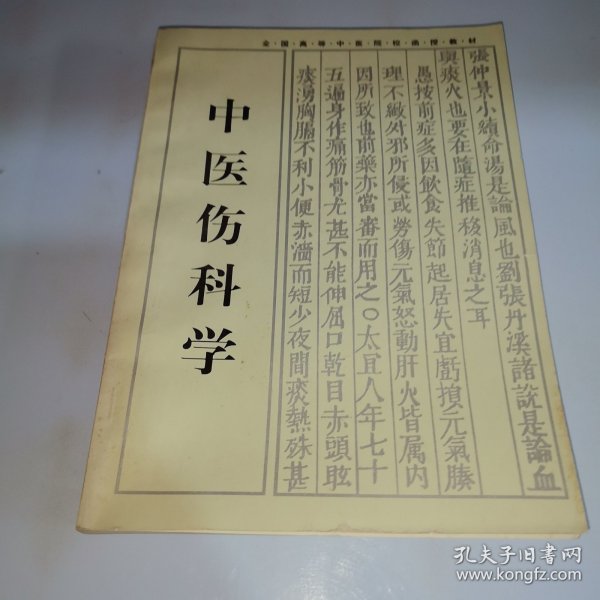 全·国·高·等·中·医·院·校·函·授·教·材
中医伤科学
張仲景小續命湯是論風也劉張丹溪諸說是論血
與痰火也要在隨症推移消息之耳
愚按前症多因飲食失節起居失宜虧損元氣腠
理不緻外邪所侵或勞傷元氣怒動肝火皆属内
因所致也前藥亦當審而用之○太宜人年七十
五遍身作痛筋骨尤甚不能伸屈口乾目赤頭眩
痰湧胸膈不利小便赤澀而短少夜間痰熱殊甚
孔夫子旧书网
www.kongfz.com